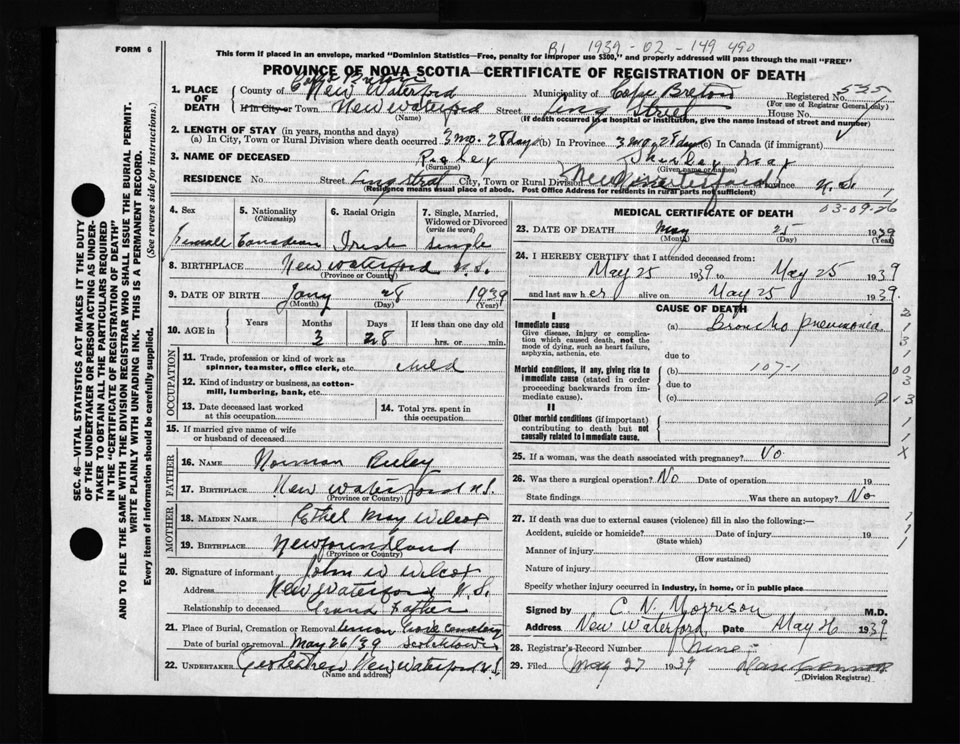 B1 1939-02-149 490
FORM 6
This form if placed in an envelope, marked "Dominion Statistics—Free, penalty for improper use $300," and properly addressed will pass through the mail "FREE"
PROVINCE OF NOVA SCOTIA—CERTIFICATE OF REGISTRATION OF DEATH
SEC. 46—VITAL STATISTICS ACT MAKES IT THE DUTY
OF THE UNDERTAKER OR PERSON ACTING AS UNDER-
TAKER TO OBTAIN ALL THE PARTICULARS REQUIRED
IN THE "CERTIFICATE OF REGISTRATION OF DEATH"
AND TO FILE THE SAME WITH THE DIVISION REGISTRAR WHO SHALL ISSUE THE BURIAL PERMIT.
WRITE PLAINLY WITH UNFADING INK. THIS IS A PERMANENT RECORD.
Every item of information should be carefully supplied. (See reverse side for instructions.)
1. PLACE OF DEATH
Cape Breton
County of New Waterford Municipality of Cape Breton Registered No. 535
(For use of Registrar General only)
If in City or Town New Waterford Street Street House No.
(Name) (If death occurred in a hospital or institution, give the name instead of street and number)
2. LENGTH OF STAY (in years, months and days)
(a) In City, Town or Rural Division where death occurred 3 mo. 28 days (b) In Province 3 mo. 28 days (c) In Canada (if immigrant)
3. NAME OF DECEASED Shirley May
(Surname) (Given name or names)
RESIDENCE No. Street City, Town or Rural Division New Waterford Province N.S.
(Residence means usual place of abode. Post Office Address for residents in rural parts not sufficient)
4. Sex Female
5. Nationality (Citizenship) Canadian
6. Racial Origin Irish
7. Single, Married, Widowed or Divorced (write the word) single
8. BIRTHPLACE New Waterford N.S.
(Province or Country)
9. DATE OF BIRTH Jany 28 1939
(Month) (Day) (Year)
10. AGE in Years Months 3 Days 28 If less than one day old hrs. or min.
OCCUPATION
11. Trade, profession or kind of work as
spinner, teamster, office clerk, etc. child
12. Kind of industry or business, as cotton-
mill, lumbering, bank, etc.
13. Date deceased last worked
at this occupation
14. Total yrs. spent in
this occupation
15. If married give name of wife
or husband of deceased
FATHER
16. NAME Norman
17. BIRTHPLACE New Waterford N.S.
(Province or Country)
MOTHER
18. MAIDEN NAME Ethel May Wilcox
19. BIRTHPLACE Newfoundland
(Province or Country)
20. Signature of informant John W Wilcox
Address New Waterford N.S.
Relationship to deceased Grand Father
21. Place of Burial, Cremation or Removal Cemetery
Date of burial or removal May 26/39 Scotchtown
22. UNDERTAKER New Waterford N.S.
(Name and address)
MEDICAL CERTIFICATE OF DEATH
03-09-26
23. DATE OF DEATH May 25 1939
(Month) (Day) (Year)
24. I HEREBY CERTIFY that I attended deceased from:
May 25 1939 to May 25 1939
and last saw her alive on May 25 1939.
CAUSE OF DEATH
I
Immediate cause (a) Broncho pneumonia
Give disease, injury or complica-
tion which caused death, not the
mode of dying, such as heart failure,
asphyxia, asthenia, etc.
due to
Morbid conditions, if any, giving rise to
immediate cause (stated in order
proceeding backwards from im-
mediate cause).
(b) 107-1
due to
(c)
II
Other morbid conditions (if important)
contributing to death but not
causally related to immediate cause.
25. If a woman, was the death associated with pregnancy? No
26. Was there a surgical operation? No Date of operation 19
State findings Was there an autopsy? No
27. If death was due to external causes (violence) fill in also the following:—
Accident, suicide or homicide? Date of injury 19
(State which)
Manner of injury
(How sustained)
Nature of injury
Specify whether injury occurred in industry, in home, or in public place
Signed by C N Morrison M.D.
Address New Waterford Date May 26 1939
28. Registrar's Record Number
29. Filed May 27 1939
(Division Registrar)